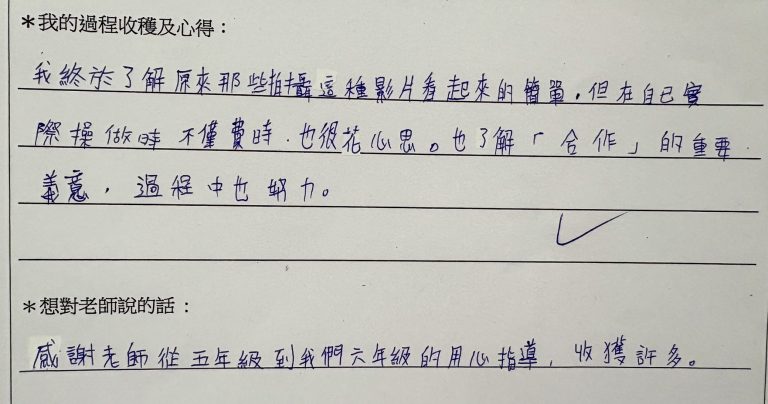 ＊我的過程收穫及心得：
我終於了解原來那些拍攝這種影片看起來的簡單，但在自己實
際操做時不僅費時，也很花心思。也了解「合作」的重要
義意，過程中也努力。
＊想對老師說的話：
感謝老師從五年級到我們六年級的用心指導，收獲許多。